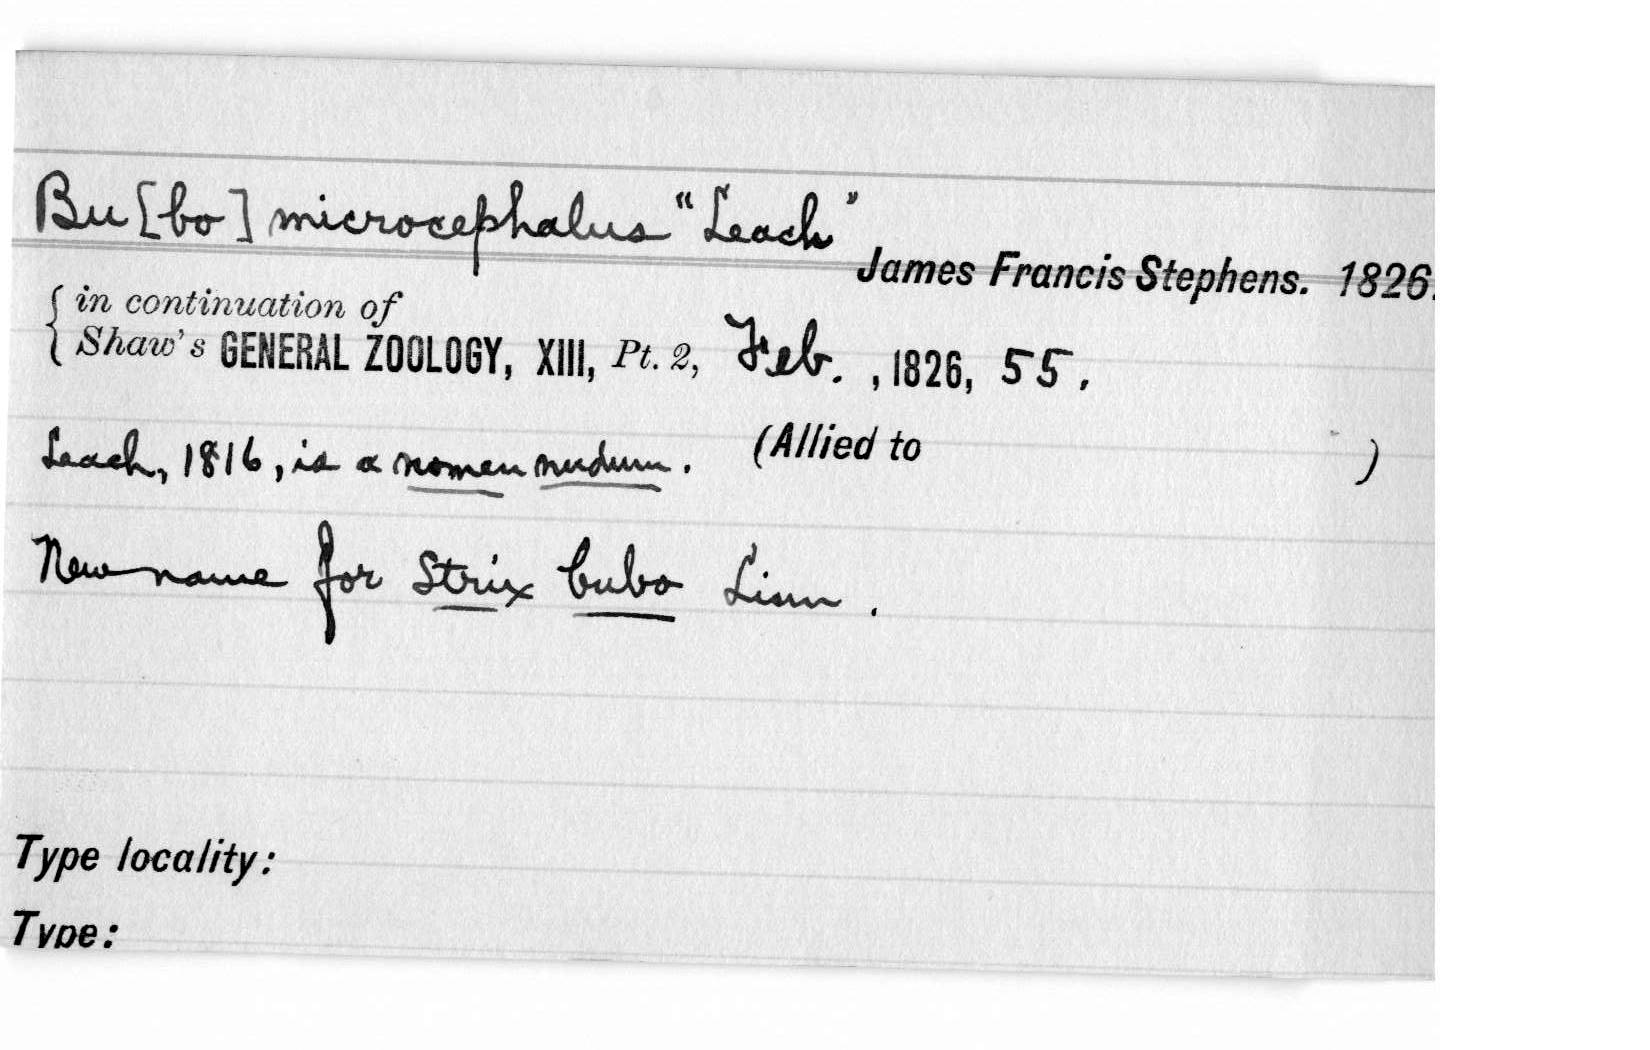 Bu[bo] microcephalus "Leach"
James Francis Stephens. 1826.
{ in continuation of
Shaw's GENERAL ZOOLOGY, XIII, Pt. 2, Feb. , 1826, 55.
Leach, 1816, is a nomen nudum. (Allied to )
New name for Strix bubo Linn.
Type locality:
Type: